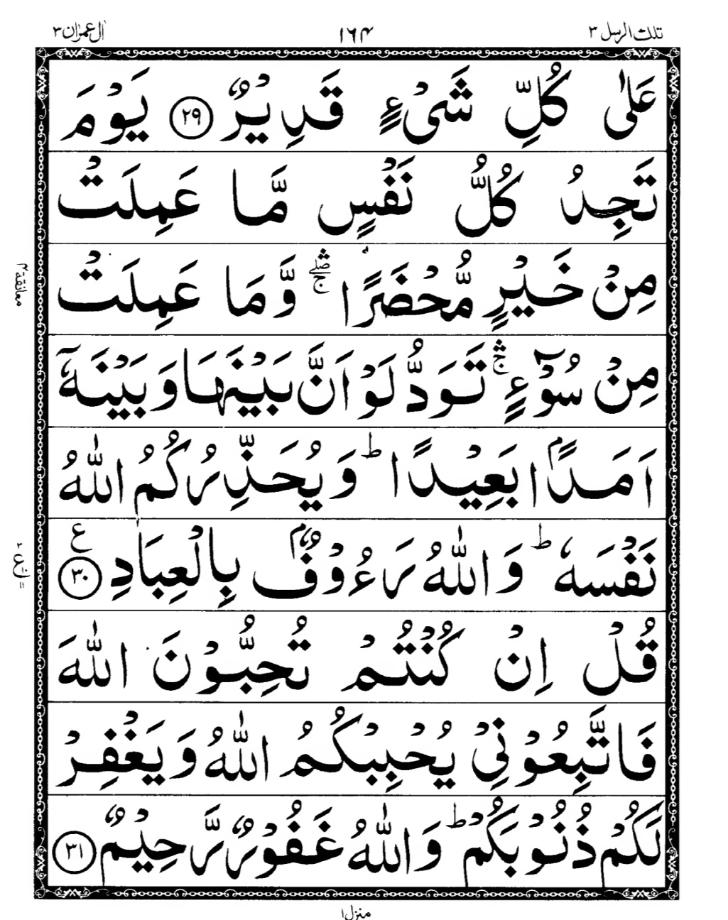 تلك الرسل ٣ ١٦٤ اٰل عمرٰن ٣
عَلٰى كُلِّ شَىْءٍ قَدِيْرٌ ۝٢٩ يَوْمَ
تَجِدُ كُلُّ نَفْسٍ مَّا عَمِلَتْ
مِنْ خَيْرٍ مُّحْضَرًا ۛۖۚ وَّمَا عَمِلَتْ
مِنْ سُوْٓءٍ ۛۚ تَوَدُّ لَوْ اَنَّ بَيْنَهَا وَبَيْنَهٗۤ
اَمَدًۢا بَعِيْدًا ؕ وَيُحَذِّرُكُمُ اللّٰهُ
نَفْسَهٗ ؕ وَاللّٰهُ رَءُوْفٌۢ بِالْعِبَادِ ۝٣٠ ع
قُلْ اِنْ كُنْتُمْ تُحِبُّوْنَ اللّٰهَ
فَاتَّبِعُوْنِيْ يُحْبِبْكُمُ اللّٰهُ وَيَغْفِرْ
لَكُمْ ذُنُوْبَكُمْ ؕ وَاللّٰهُ غَفُوْرٌ رَّحِيْمٌ ۝٣١
منزل ١
معانقة ٣